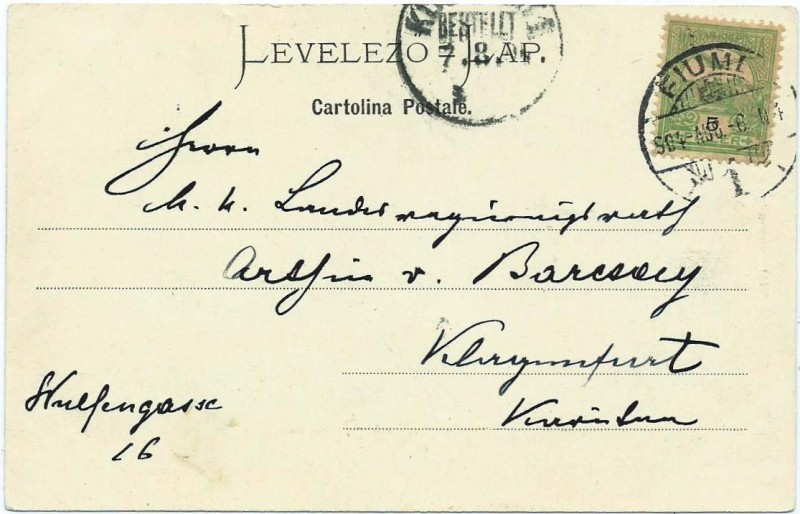 LEVELEZO-LAP.
Cartolina Postale.
BESTELLT
7.8.
FIUME
904-AUG.-6
5
1
Herrn
k. k. Landesregierungsrath
Arthur v. Barcsay
Klagenfurt
Kärnten
Wulfengasse
16